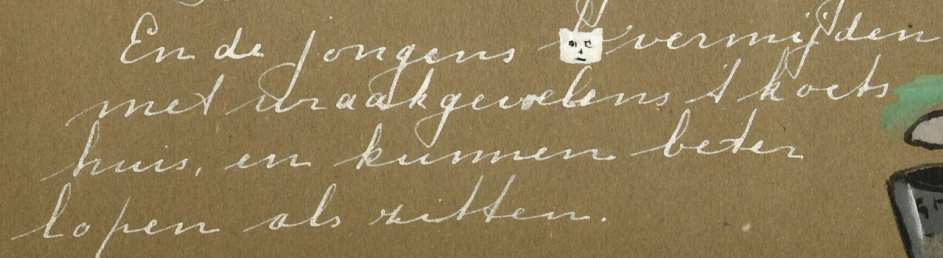 En de jongens vermijden
met wraakgevoelens 't koets
huis, en kunnen beter
lopen als zitten.